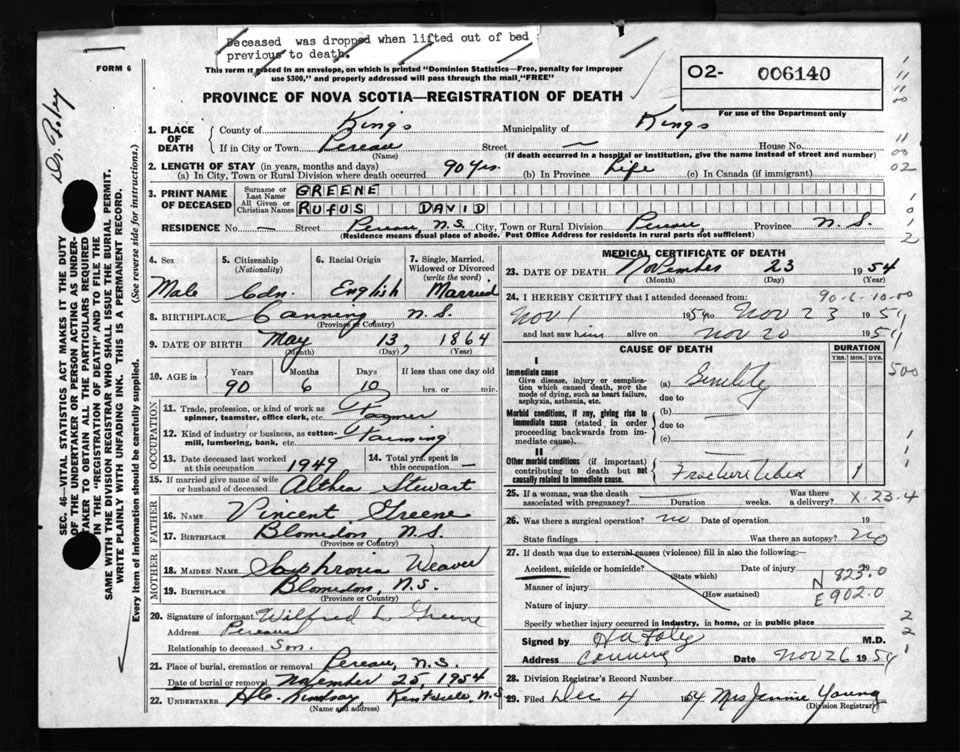 Deceased was dropped when lifted out of bed
previous to death.
FORM 6
This form if placed in an envelope, on which is printed "Dominion Statistics—Free, penalty for improper
use $300," and properly addressed will pass through the mail "FREE"
02- 006140
For use of the Department only
PROVINCE OF NOVA SCOTIA—REGISTRATION OF DEATH
Dr. Foley
SEC. 46—VITAL STATISTICS ACT MAKES IT THE DUTY
OF THE UNDERTAKER OR PERSON ACTING AS UNDER-
TAKER TO OBTAIN ALL THE PARTICULARS REQUIRED
IN THE "REGISTRATION OF DEATH" AND TO FILE THE
SAME WITH THE DIVISION REGISTRAR WHO SHALL ISSUE THE BURIAL PERMIT.
WRITE PLAINLY WITH UNFADING INK. THIS IS A PERMANENT RECORD.
Every item of information should be carefully supplied. (See reverse side for instructions.)
1. PLACE OF DEATH
County of Kings Municipality of Kings
If in City or Town Pereau Street — House No.
(Name) (If death occurred in a hospital or institution, give the name instead of street and number)
2. LENGTH OF STAY (in years, months and days)
(a) In City, Town or Rural Division where death occurred 90 Yrs. (b) In Province Life (c) In Canada (if immigrant)
3. PRINT NAME OF DECEASED
Surname or Last Name GREENE
All Given or Christian Names RUFUS DAVID
RESIDENCE No — Street Pereau, N.S. City, Town or Rural Division Pereau Province N.S.
(Residence means usual place of abode. Post Office Address for residents in rural parts not sufficient)
4. Sex Male
5. Citizenship (Nationality) Cdn.
6. Racial Origin English
7. Single, Married, Widowed or Divorced (write the word) Married
8. BIRTHPLACE Canning N.S.
(Province or Country)
9. DATE OF BIRTH May 13, 1864
(Month) (Day) (Year)
10. AGE in Years 90 Months 6 Days 10 If less than one day old hrs. or min.
OCCUPATION
11. Trade, profession, or kind of work as spinner, teamster, office clerk, etc. Farmer
12. Kind of industry or business, as cotton-mill, lumbering, bank, etc. Farming
13. Date deceased last worked at this occupation 1949
14. Total yrs. spent in this occupation —
15. If married give name of wife or husband of deceased Althea Stewart
FATHER
16. NAME Vincent Greene
17. BIRTHPLACE Blomedon, N.S.
(Province or Country)
MOTHER
18. MAIDEN NAME Sophronia Weaver
19. BIRTHPLACE Blomedon, N.S.
(Province or Country)
20. Signature of informant Wilfred L Greene
Address Pereau
Relationship to deceased Son.
21. Place of burial, cremation or removal Pereau, N.S.
Date of burial or removal November 25, 1954
22. UNDERTAKER H.C. Lindsay Kentville, N.S
(Name and address)
MEDICAL CERTIFICATE OF DEATH
23. DATE OF DEATH November 23 1954
(Month) (Day) (Year)
24. I HEREBY CERTIFY that I attended deceased from: 90-6-10-00
Nov 1 1954 to Nov 23 1954
and last saw him alive on Nov 20 1954
CAUSE OF DEATH DURATION
YRS. MOS. DYS.
I
Immediate cause
Give disease, injury or complica-
tion which caused death, NOT the
mode of dying, such as heart failure,
asphyxia, asthenia, etc.
(a) Senility
due to
500
Morbid conditions, if any, giving rise to
immediate cause (stated in order
proceeding backwards from im-
mediate cause).
(b)
due to
(c)
II
Other morbid conditions (if important)
contributing to death but not
causally related to immediate cause.
Fracture tibia 1
25. If a woman, was the death associated with pregnancy? Duration weeks. Was there a delivery?
X-23-4
26. Was there a surgical operation? no Date of operation 19
State findings Was there an autopsy? No
27. If death was due to external causes (violence) fill in also the following:—
Accident, suicide or homicide? Date of injury 19
(State which)
Manner of injury
(How sustained)
Nature of injury
N 823.0
E 902.0
Specify whether injury occurred in industry, in home, or in public place
Signed by H A Foley M.D.
Address Canning Date Nov 26 1954
28. Division Registrar's Record Number
29. Filed Dec 4 1954 Mrs Jennie Young
(Division Registrar)